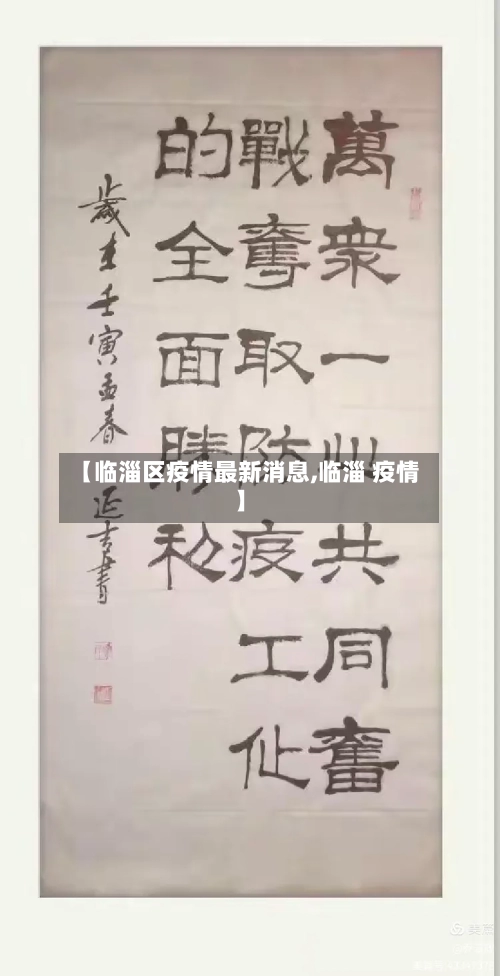 萬衆一心共同奮
戰奪取防疫工作
的全面勝利
歲在壬寅孟春
延吉書
【临淄区疫情最新消息,临淄 疫情
】